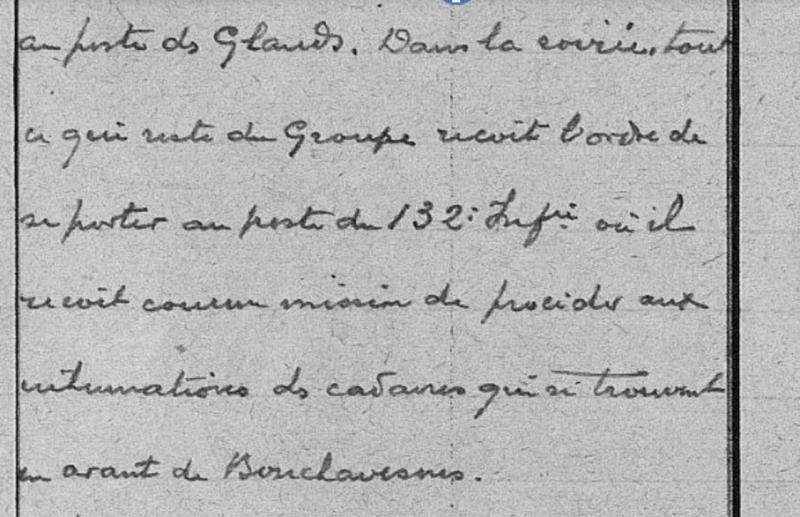 au poste des Glands. Dans la soirée, tout
ce qui reste du Groupe reçoit l'ordre de
se porter au poste du 132e Infrie où il
reçoit comme mission de procéder aux
inhumations des cadavres qui se trouvent
en avant de Bouchavesnes.